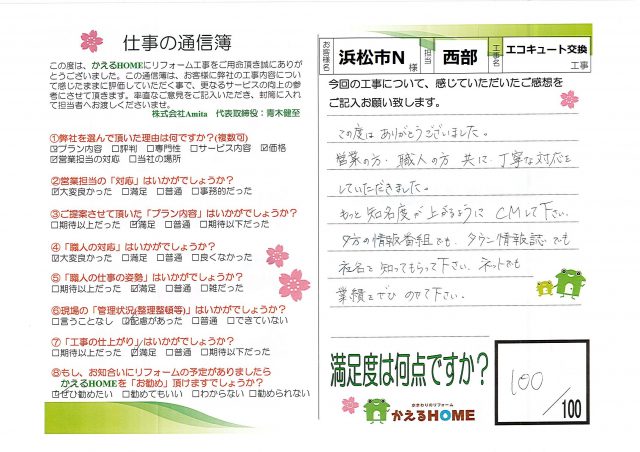 仕事の通信簿
この度は、かえるHOMEにリフォーム工事をご用命頂き誠にありが
とうございました。この通信簿は、お客様に弊社の工事内容につい
て感じたままに評価していただく事で、更なるサービスの向上の参
考にさせて頂きます。率直なご意見をご記入いただき、封筒に入れ
て担当者へお渡しくださいませ。
株式会社Amita 代表取締役:青木健至
①弊社を選んで頂いた理由は何ですか?(複数可)
☑プラン内容 □評判 □専門性 □サービス内容 ☑価格
☑営業担当の対応 □当社の場所
②営業担当の「対応」はいかがでしょうか?
☑大変良かった □満足 □普通 □事務的だった
③ご提案させて頂いた「プラン内容」はいかがでしょうか?
□期待以上だった ☑満足 □普通 □期待以下だった
④「職人の対応」はいかがでしょうか?
☑大変良かった □満足 □普通 □良くなかった
⑤「職人の仕事の姿勢」はいかがでしょうか?
□期待以上だった ☑満足 □普通 □雑だった
⑥現場の「管理状況(整理整頓等)」はいかがでしょうか?
□言うことなし ☑配慮があった □普通 □できていない
⑦「工事の仕上がり」はいかがでしょうか?
□期待以上だった ☑満足 □普通 □期待以下だった
⑧もし、お知合いにリフォームの予定がありましたら
かえるHOMEを「お勧め」頂けますでしょうか?
☑ぜひ勧めたい □勧めてもいい □わからない □勧められない
お客様名 浜松市N 様 担当 西部 工事名 エコキュート交換 工事
今回の工事について、感じていただいたご感想を
ご記入お願い致します。
この度は ありがとうございました。
営業の方・職人の方 共に 丁寧な対応を
していただきました。
もっと 知名度が 上がるように CMして下さい。
夕方の情報番組でも、タウン情報誌でも
社名を知ってもらって下さい。ネットでも
業績をぜひ のせて下さい。
満足度は何点ですか?
100/100
かかわりのリフォーム
かえるHOME